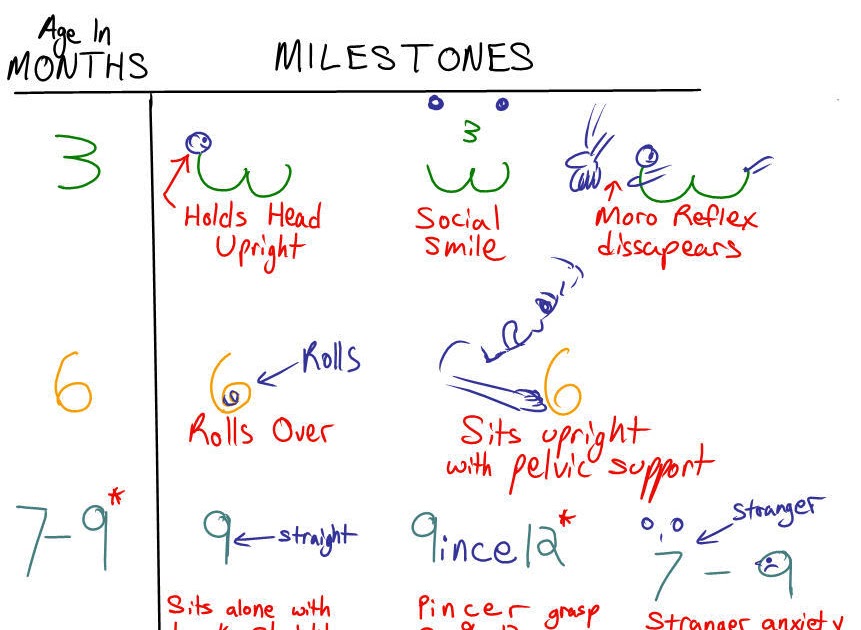 Age In
MONTHS
MILESTONES
3
3
Holds Head
Upright
Social
Smile
Moro Reflex
dissapears
6
6
Rolls
Rolls Over
6
Sits upright
with pelvic support
7-9*
9
straight
9ince12*
Stranger
7-9
Sits alone with
Pincer grasp
Stranger anxiety